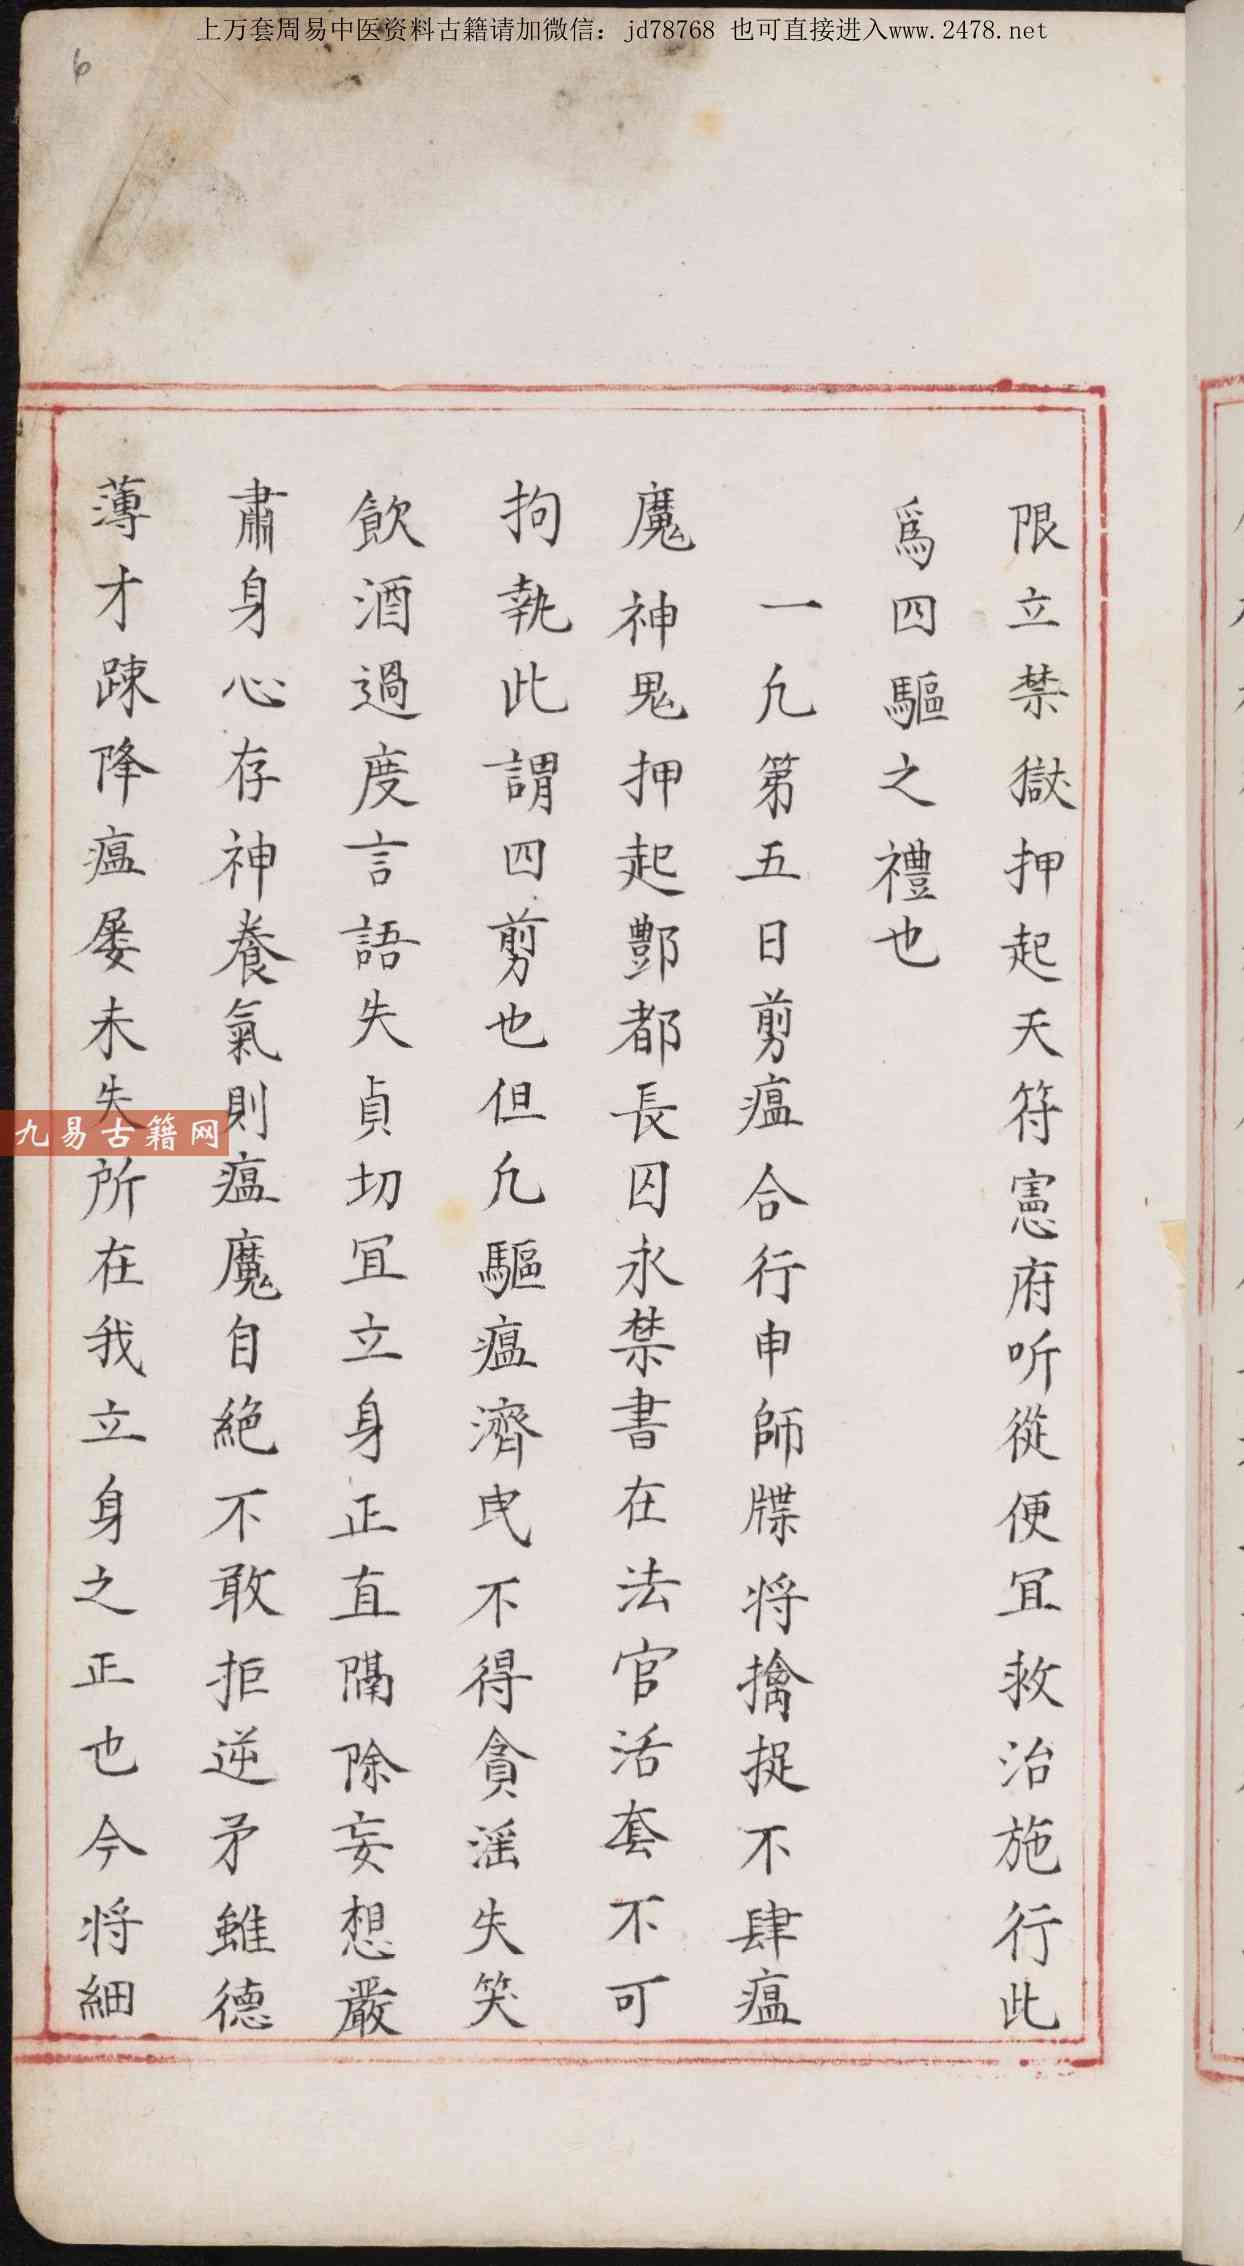 上万套周易中医资料古籍请加微信：jd78768 也可直接进入www.2478.net
6
限立禁獄押起天符憲府听從便冝救治施行此
爲四驅之禮也
一凢第五日剪瘟合行申師牒将擒捉不肆瘟
魔神鬼押起酆都長囚永禁書在法官活套不可
拘執此謂四剪也但凢驅瘟濟民不得貪淫失笑
飲酒過度言語失貞切冝立身正直隔除妄想嚴
肅身心存神養氣則瘟魔自絶不敢拒逆矛雖德
薄才踈降瘟屡未失所在我立身之正也今将細
九易古籍网